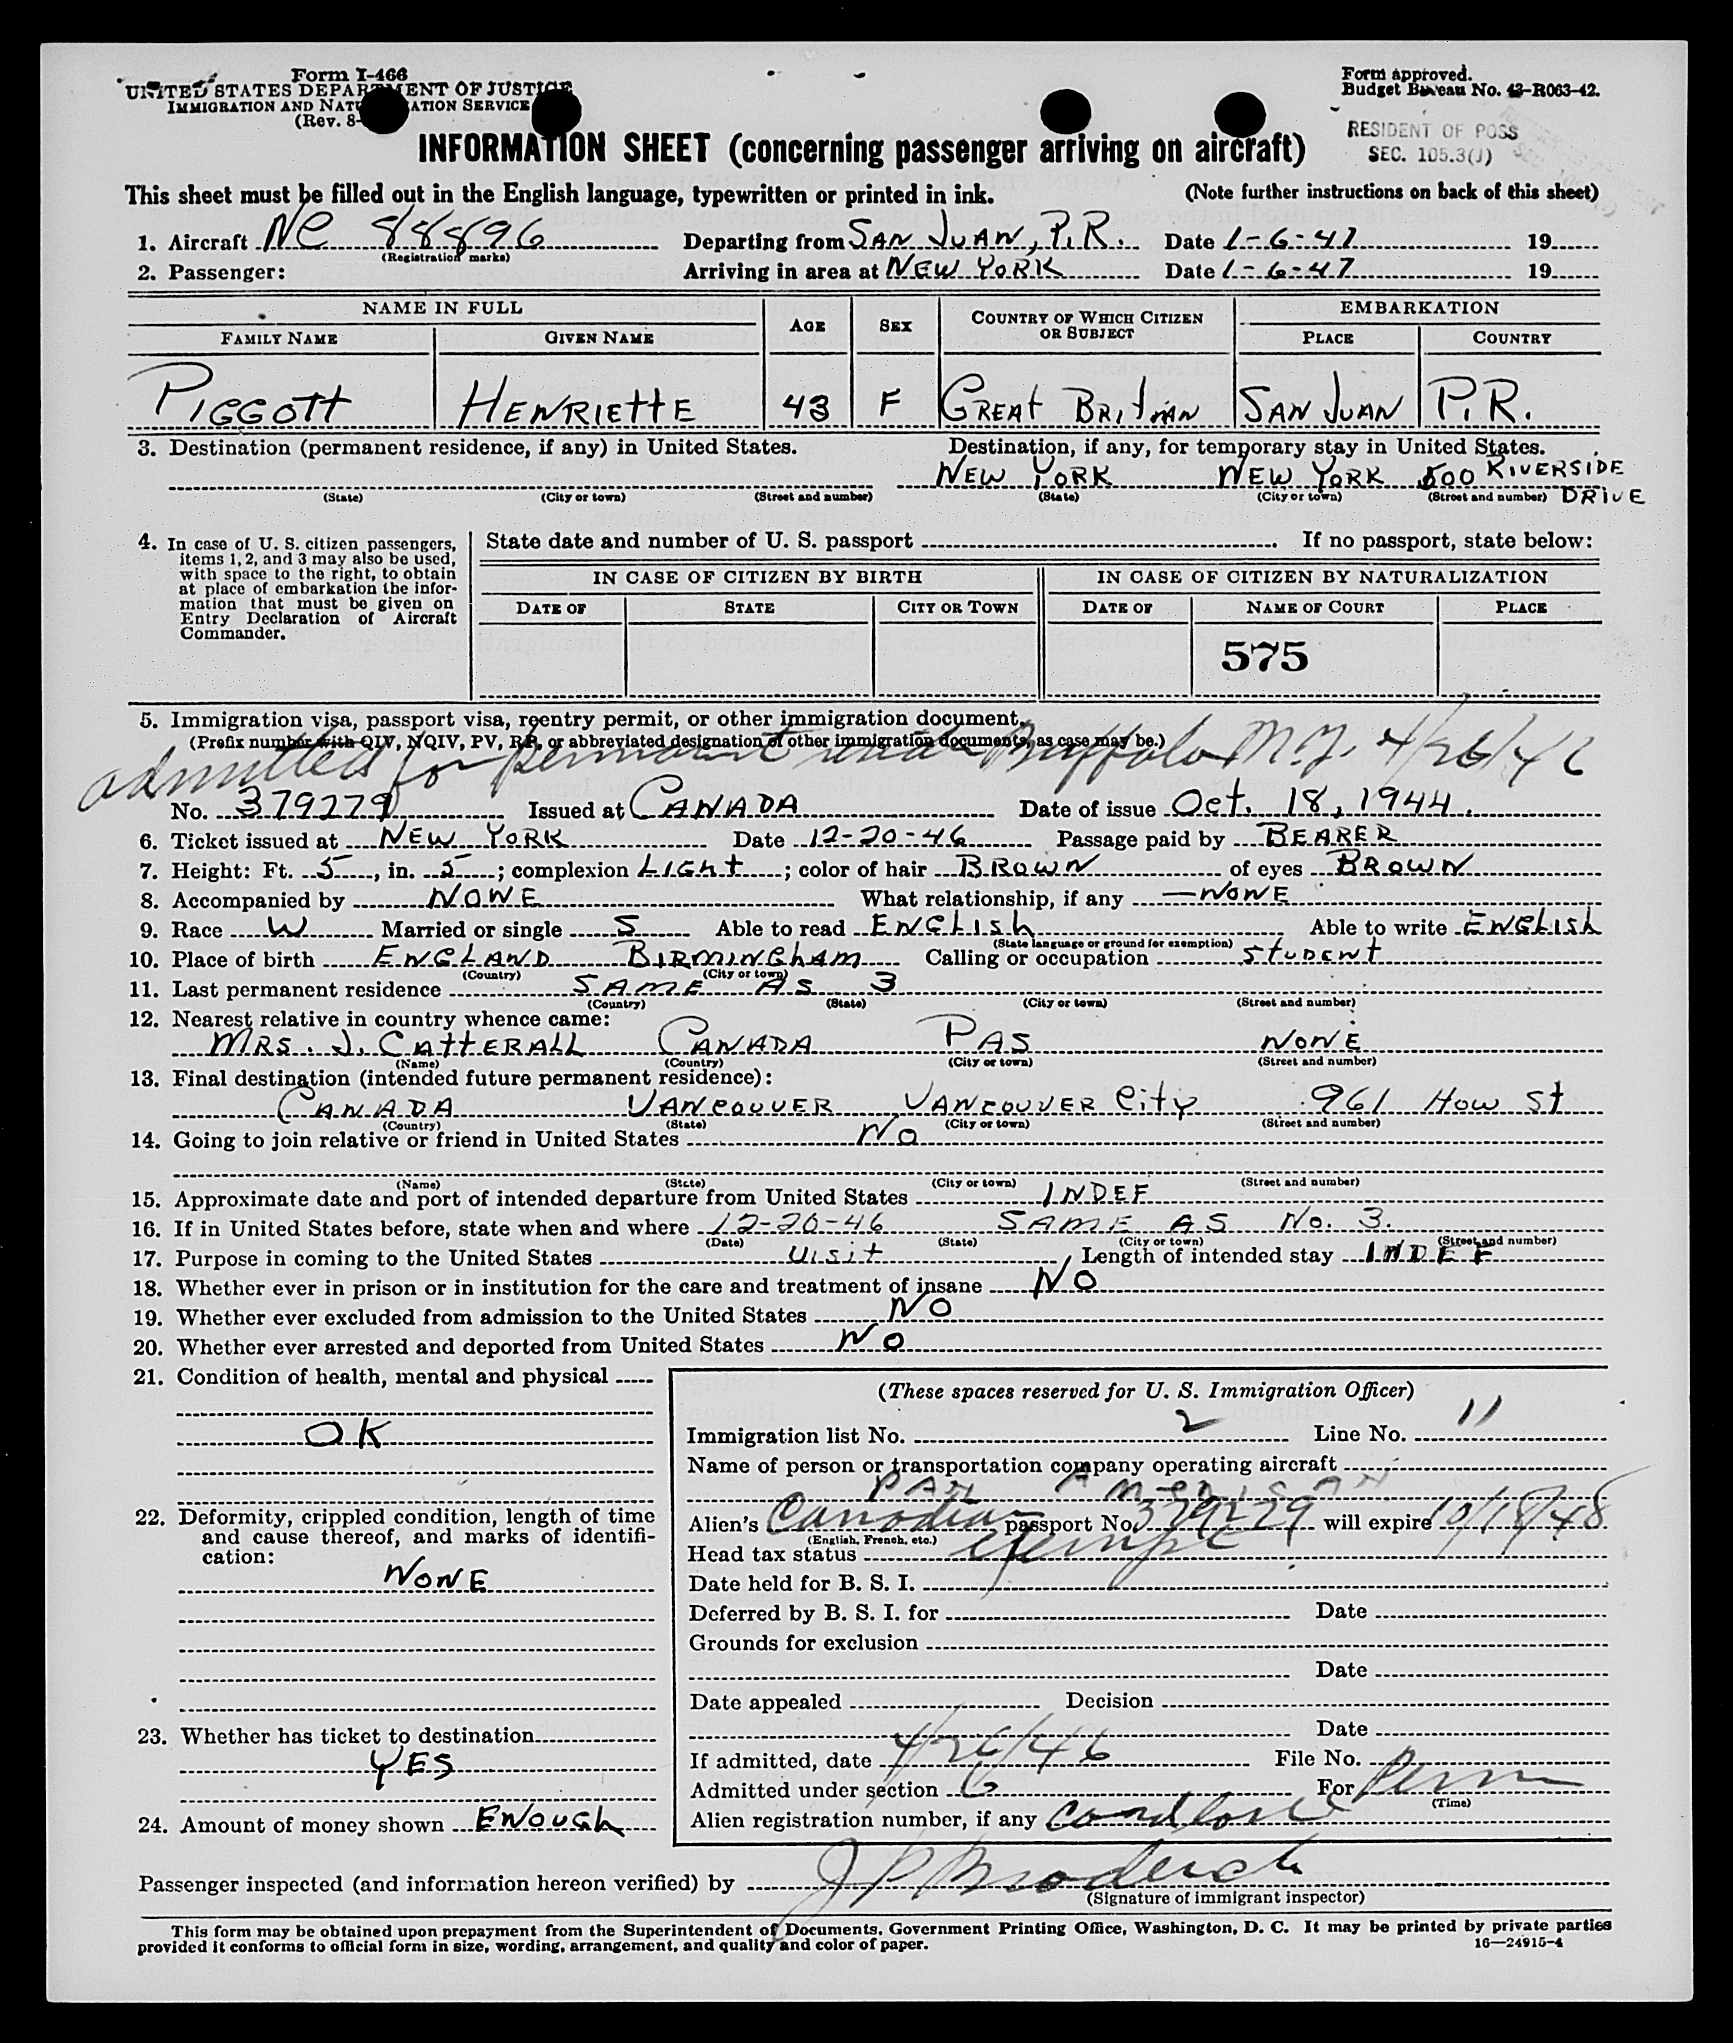 Form I-466
UNITED STATES DEPARTMENT OF JUSTICE
IMMIGRATION AND NATURALIZATION SERVICE
(Rev. 8-
Form approved.
Budget Bureau No. 43-R063-42.
RESIDENT OF POSS
SEC. 105.3(J)
INFORMATION SHEET (concerning passenger arriving on aircraft)
This sheet must be filled out in the English language, typewritten or printed in ink. (Note further instructions on back of this sheet)
1. Aircraft NC 88896 Departing from SAN JUAN, P.R. Date 1-6-47 19
(Registration marks)
2. Passenger: Arriving in area at NEW YORK Date 1-6-47 19
NAME IN FULL AGE SEX COUNTRY OF WHICH CITIZEN OR SUBJECT EMBARKATION
FAMILY NAME GIVEN NAME PLACE COUNTRY
PIGGOTT HENRIETTE 43 F GREAT BRITIAN SAN JUAN P.R.
3. Destination (permanent residence, if any) in United States. Destination, if any, for temporary stay in United States.
NEW YORK NEW YORK 500 RIVERSIDE DRIVE
(State) (City or town) (Street and number) (State) (City or town) (Street and number)
4. In case of U. S. citizen passengers, items 1, 2, and 3 may also be used, with space to the right, to obtain at place of embarkation the information that must be given on Entry Declaration of Aircraft Commander.
State date and number of U. S. passport . If no passport, state below:
IN CASE OF CITIZEN BY BIRTH IN CASE OF CITIZEN BY NATURALIZATION
DATE OF STATE CITY OR TOWN DATE OF NAME OF COURT PLACE
575
5. Immigration visa, passport visa, reentry permit, or other immigration document.
(Prefix number with QIV, NQIV, PV, RP, or abbreviated designation of other immigration documents, as case may be.)
admitted for permanent Buffalo N.Y. 4/26/46
No. 379279 Issued at CANADA Date of issue Oct. 18, 1944.
6. Ticket issued at NEW YORK Date 12-20-46 Passage paid by BEARER
7. Height: Ft. 5, in. 5; complexion LIGHT; color of hair BROWN of eyes BROWN
8. Accompanied by NONE What relationship, if any —NONE
9. Race W Married or single S Able to read ENGLISH Able to write ENGLISH
(State language or ground for exemption)
10. Place of birth ENGLAND BIRMINGHAM Calling or occupation STUDENT
(Country) (City or town)
11. Last permanent residence SAME AS 3
(Country) (State) (City or town) (Street and number)
12. Nearest relative in country whence came:
MRS. J. CATTERALL CANADA PAS NONE
(Name) (Country) (City or town) (Street and number)
13. Final destination (intended future permanent residence):
CANADA VANCOUVER VANCOUVER City 961 HOW St
(Country) (State) (City or town) (Street and number)
14. Going to join relative or friend in United States NO
(Name) (State) (City or town) (Street and number)
15. Approximate date and port of intended departure from United States INDEF
16. If in United States before, state when and where 12-20-46 SAME AS No. 3.
(Date) (State) (City or town) (Street and number)
17. Purpose in coming to the United States Visit Length of intended stay INDEF
18. Whether ever in prison or in institution for the care and treatment of insane NO
19. Whether ever excluded from admission to the United States NO
20. Whether ever arrested and deported from United States NO
21. Condition of health, mental and physical
OK
22. Deformity, crippled condition, length of time and cause thereof, and marks of identification:
NONE
23. Whether has ticket to destination
YES
24. Amount of money shown ENOUGH
(These spaces reserved for U. S. Immigration Officer)
Immigration list No. 2 Line No. 11
Name of person or transportation company operating aircraft
PAN AMERICAN
Alien's Canadian passport No. 379279 will expire 10/18/48
(English, French, etc.)
Head tax status exempt
Date held for B. S. I.
Deferred by B. S. I. for Date
Grounds for exclusion
Date
Date appealed Decision
Date
If admitted, date 4/26/46 File No.
Admitted under section 6 For Perm
(Time)
Alien registration number, if any
Passenger inspected (and information hereon verified) by J P Broderick
(Signature of immigrant inspector)
This form may be obtained upon prepayment from the Superintendent of Documents, Government Printing Office, Washington, D. C. It may be printed by private parties
provided it conforms to official form in size, wording, arrangement, and quality and color of paper. 16—24915-4